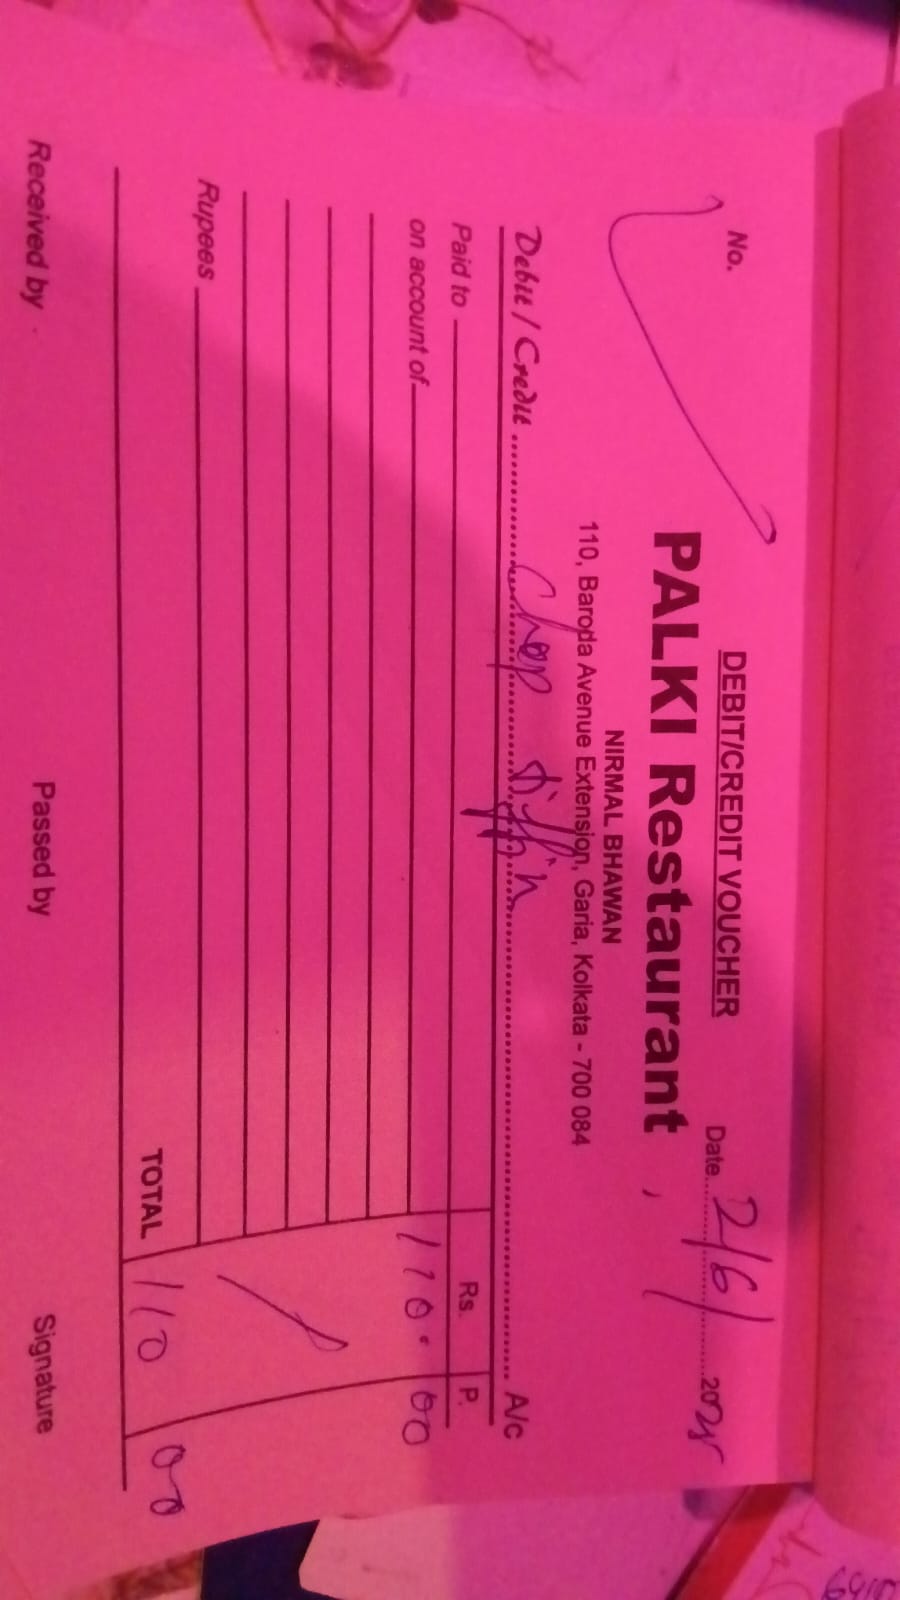 DEBIT/CREDIT VOUCHER
No. Date 2/6/ 2025
PALKI Restaurant
NIRMAL BHAWAN
110, Baroda Avenue Extension, Garia, Kolkata - 700 084
Debit / Credit Chop tiffin A/c
Paid to Rs. P.
on account of 110. 00
Rupees
TOTAL 110 00
Received by Passed by Signature